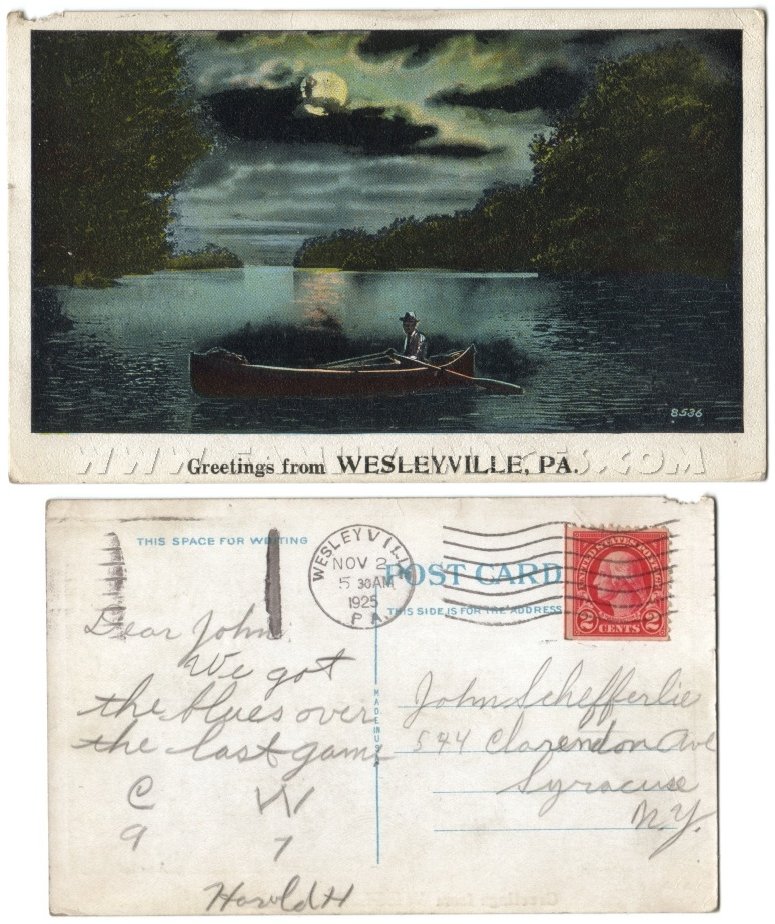 8536
Greetings from WESLEYVILLE, PA.
THIS SPACE FOR WRITING
WESLEYVILLE
NOV 2
5 30AM
1925
PA.
POST CARD
THIS SIDE IS FOR THE ADDRESS
UNITED STATES POSTAGE
2 CENTS 2
MADE IN USA
Dear John,
We got
the blues over
the last game
C W
9 7
Harold H
John Schefferlie
544 Clarendon Ave
Syracuse
N.Y.